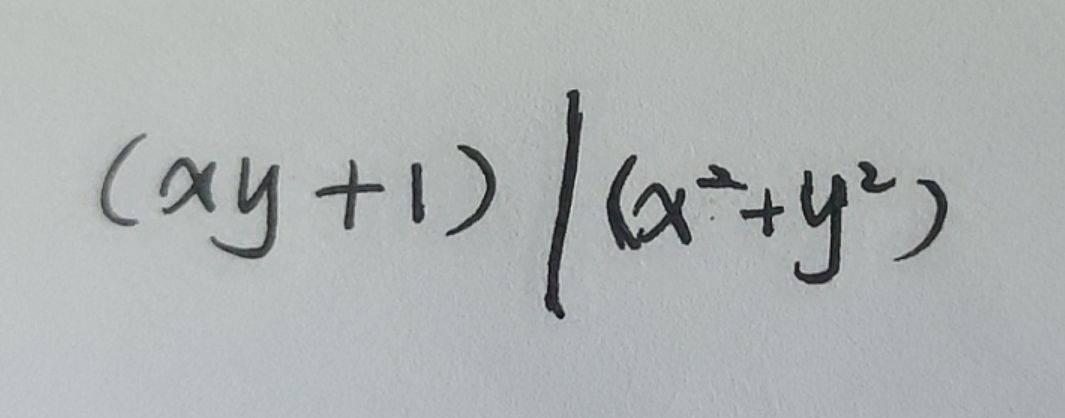 (xy+1) | (x²+y²)